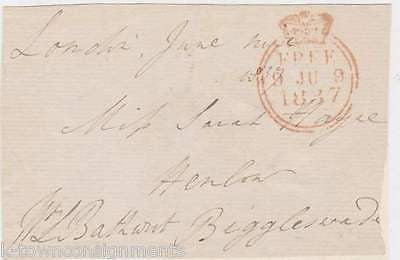 London June nine
1837
FREE
9 JU 9
1837
Miss Sarah Hayne
Henlow
Biggleswade
Wm L Bathurst
k-townconsignments